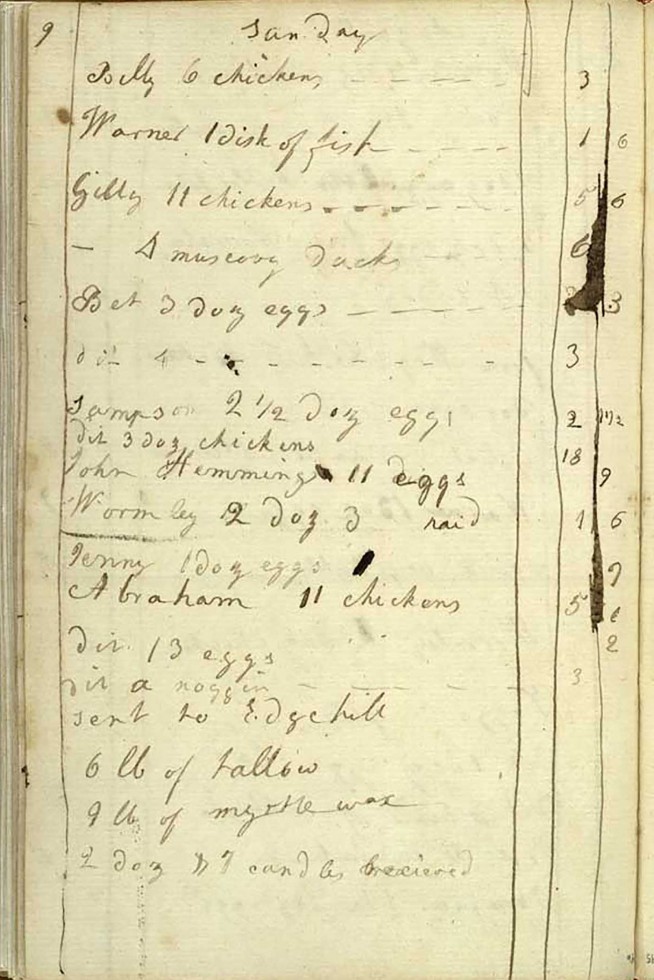 9 Sunday
Billy 6 chickens 3
Warner 1 disk of fish 1 6
Gilly 11 chickens 5 6
- 4 muscovy ducks 6
Bet 3 doz eggs 3
dit 4 - 3
Sampson 2 1/2 doz eggs 2 1/2
dit 3 doz chickens 18
John Hemmings 11 eggs 9
Wormley 2 doz 3 paid 1 6
Jenny 1 doz eggs 9
Abraham 11 chickens 5 6
dit 13 eggs 2
dit a noggin 3
sent to Edgehill
6 lb of tallow
9 lb of myrtle wax
2 doz 7 candles